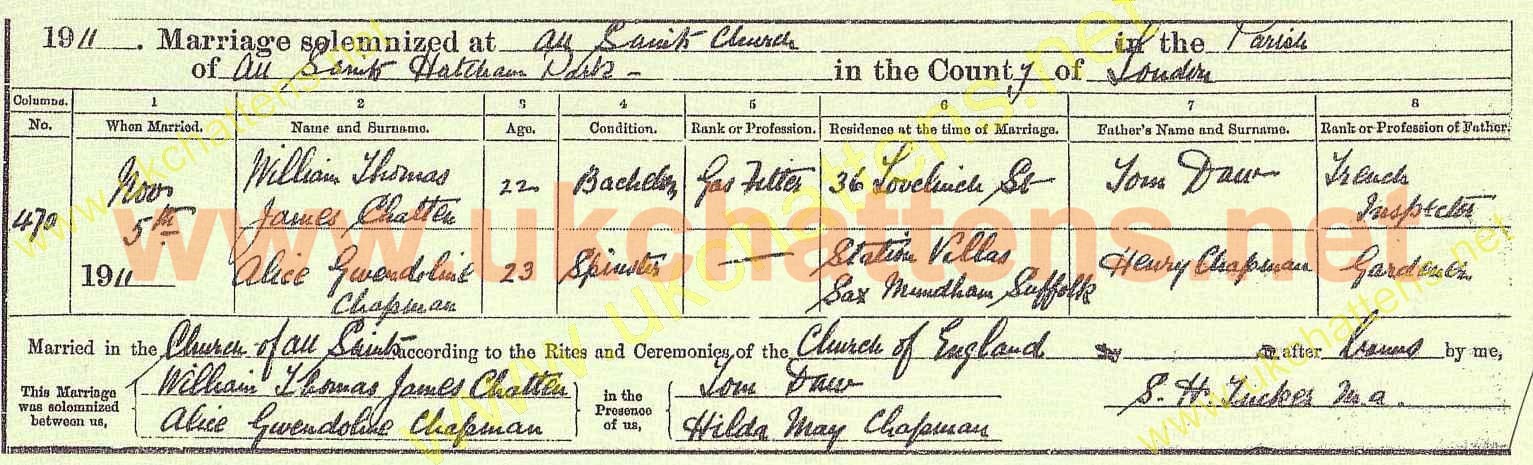 1911. Marriage solemnized at All Saints Church in the Parish
of All Saints Hatcham Park in the County of London
Columns. 1 2 3 4 5 6 7 8
No. When Married. Name and Surname. Age. Condition. Rank or Profession. Residence at the time of Marriage. Father's Name and Surname. Rank or Profession of Father.
470 Nov 5th 1911 William Thomas James Chatten 22 Bachelor Gas Fitter 36 Lovelinch St Tom Daw Trench Inspector
Alice Gwendoline Chapman 23 Spinster — Station Villas Sax Mundham Suffolk Henry Chapman Gardener
Married in the Church of All Saints according to the Rites and Ceremonies of the Church of England after Banns by me,
This Marriage was solemnized between us, William Thomas James Chatten Alice Gwendoline Chapman in the Presence of us, Tom Daw Hilda May Chapman S. H. Tucker M.a.
www.ukchattens.net
www.ukchattens.net
www.ukchattens.net
www.ukchattens.net